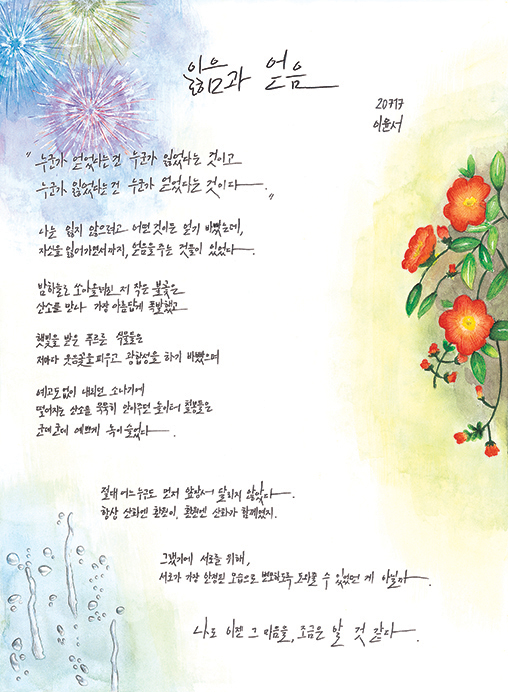 잃음과 얻음
20717
이윤서
"누군가 얻었다는 건 누군가 잃었다는 것이고
누군가 잃었다는 건 누군가 얻었다는 것이다."
나는 잃지 않으려고 어떤 것이든 얻기 바빴는데,
자신을 잃어가면서까지, 얻음을 주는 것들이 있었다.
밤하늘로 쏘아올려진 저 작은 불꽃은
산소를 만나 가장 아름답게 폭발했고
햇빛을 받은 푸르른 식물들은
저마다 웃음꽃을 피우고 광합성을 하기 바빴으며
예고도없이 내리던 소나기에
떨어지는 산소를 묵묵히 안아주던 놀이터 철봉들은
군데군데 예쁘게 녹이슬었다.
절대 어느누구도 먼저 앞장서 달리지 않았다.
항상 산화엔 환원이, 환원엔 산화가 함께였지.
그랬기에 서로를 위해,
서로가 가장 안정된 모습으로 변모하도록 도와줄 수 있었던 게 아닐까.
나도 이젠 그 마음을, 조금은 알 것 같다.